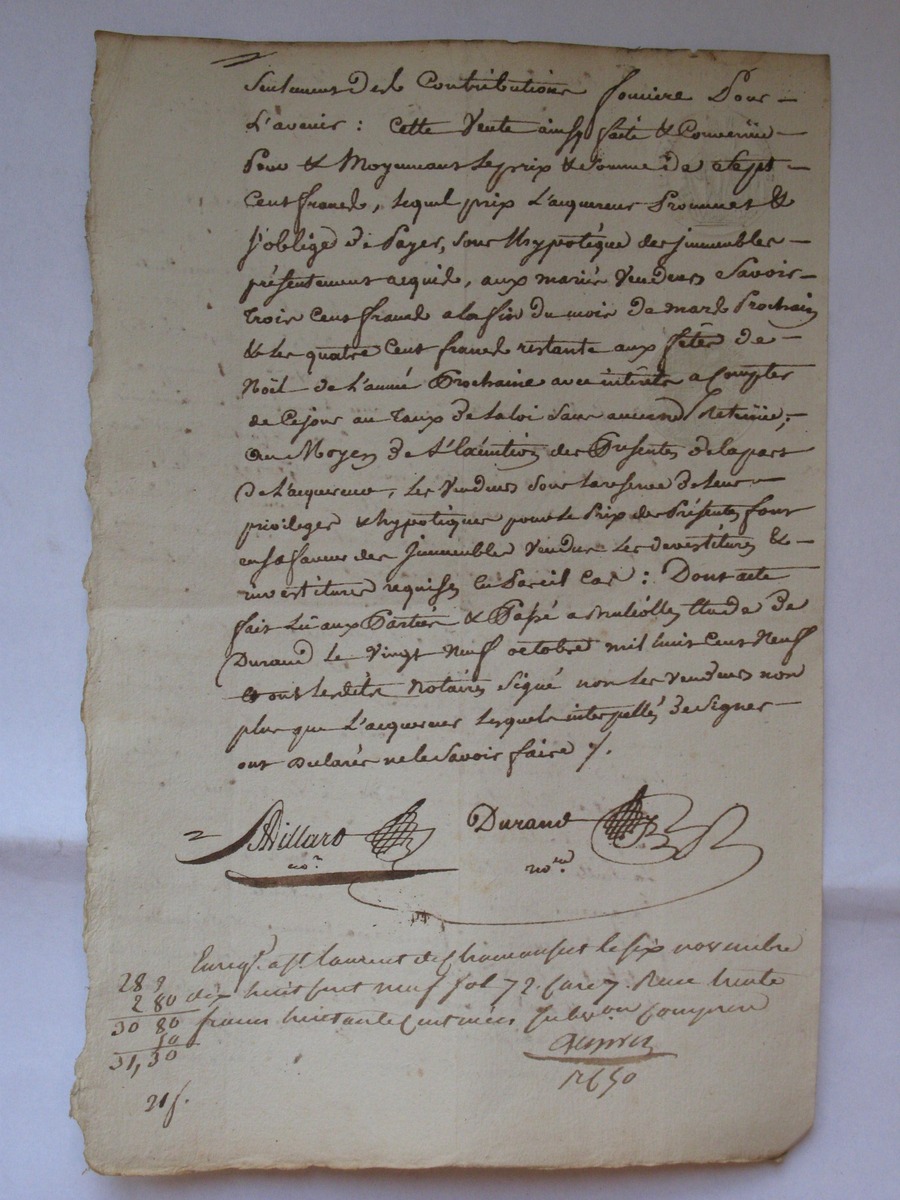 Seulement des Contributions fonciere Pour
L'avenir : cette Vente ainsy faite & Convenüe
Pour & Moyennant le prix & Somme de Sept
Cent francs, lequel prix L'acquereur Prommet &
s'oblige de Payer, sous L'hypotéque des jmmeubles
présentement acquis, aux mariés Vendeurs Savoir
trois Cent francs a la fin du mois de mars Prochain
& les quatre Cent francs restants aux fêtes de
Noël de L'année Prochaine avec intérêts a Compter
de Ce jour au Taux de la loi Sans aucune Retenüe,
au Moyen de L'Exécution des Présentes de la part
De L'acquereur, les Vendeurs Sous la reserve de leur
privileges & hypotéques pour le Prix des Présentes font
en sa faveur des jmmeubles Vendus les devestitures &
investitures requises en Pareil Cas : Dont acte
fait Lû aux Parties & Passé a Etude de
Durand le Vingt Neuf octobre mil huit Cent Neuf
& ont lesdits Notaires Signé non les Vendeurs non
plus que L'acquereur lesquels interpellés de Signer
ont Déclarés ne le Savoir faire /.
Billard
no.re
Durand
no.re
Enreg. a St laurent de Chamousset le six novembre
dix huit cent neuf fol 72. Case 7. Recu trente
francs huitante Centimes Subvon Comprise
28 "
2 80
30 80
50
31,30
21 f.